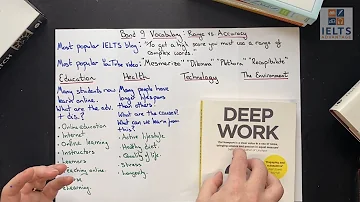 Band 9 Vocabulary: Range vs Accuracy
IELTS
ADVANTAGE
Most popular IELTS blog: "To get a high score you must use a range of
complex words."
Most popular YouTube video: "Mesmerize" "Dilemma" "Plethora" "Recapitulate"
Education Health Technology The Environment
Many students now
learn online.
What are the adv.
+ dis.?
• Online education
• Internet
• Online learning
• Instructors
• Learners
• elearning.
Many people have
longer lifespans
than others.
What are the causes?
What can we learn from
this?
• Active lifestyle
• Healthy diet
• Quality of life.
• Stress
• Longevity.
DEEP
WORK